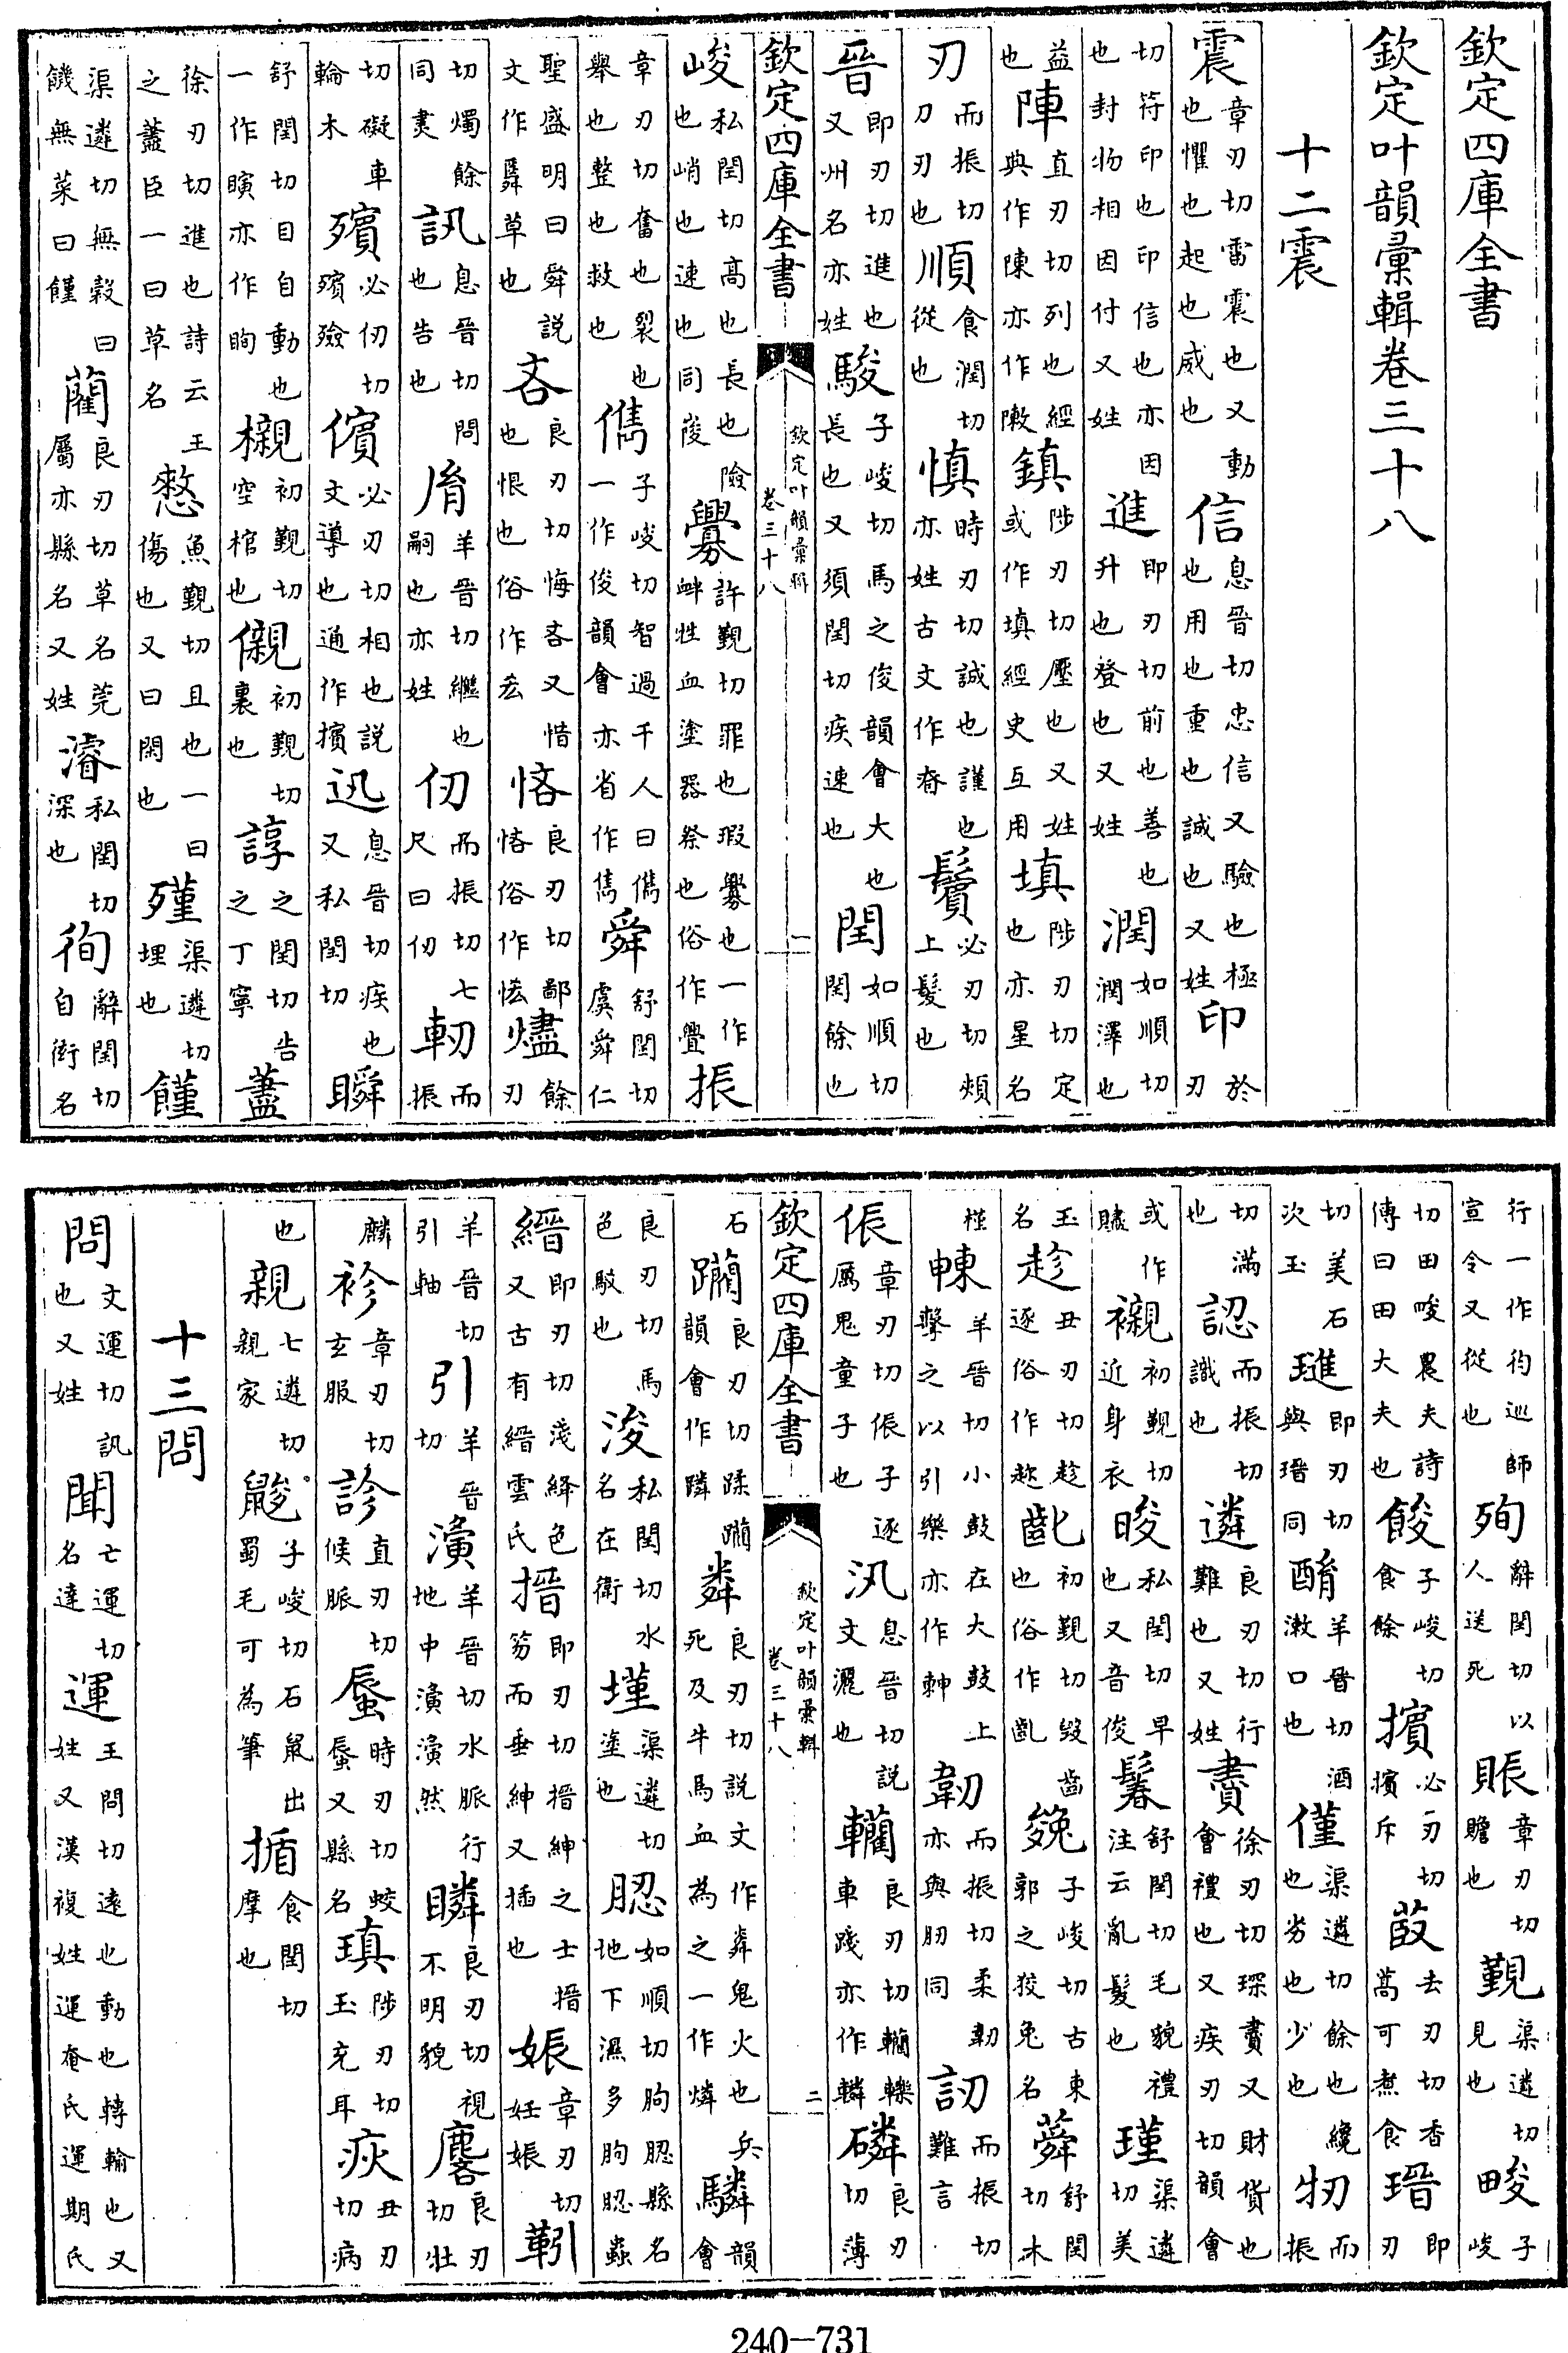 欽定四庫全書
欽定叶韻彙輯卷三十八
十二震
震章刃切雷震也又動也懼也起也威也信息晉切忠信又驗也極也用也重也誠也又姓印於刃
切符印也印信也亦因也封物相因付又姓進即刃切前也善也升也登也又姓潤如順切潤澤也
益也陣直刃切列也經典作陳亦作敶鎮陟刃切壓也又姓或作填經史互用填陟刃切定也亦星名
刃而振切刀刃也順食潤切從也慎時刃切誠也謹也亦姓古文作昚鬢必刃切頰上髮也
晉即刃切進也又州名亦姓駿子峻切馬之俊韻會大也長也又須閏切疾速也閏如順切閏餘也
欽定四庫全書 欽定叶韻彙輯 卷三十八 一
峻私閏切高也長也險也峭也速也同陖釁許覲切罪也瑕釁也一作衅牲血塗器祭也俗作舋振
章刃切奮也裂也舉也整也救也儁子峻切智過千人曰儁一作俊韻會亦省作雋舜舒閏切虞舜仁
聖盛明曰舜說文作䑞草也吝良刃切悔吝又惜也恨也俗作𠫤悋良刃切鄙悋俗作恡燼餘刃
切燭餘同㶳訊息晉切問也告也胤羊晉切繼也嗣也亦姓仞而振切七尺曰仞軔而振
切礙車輪木殯必仞切殯殮儐必刃切相也說文導也通作擯迅息晉切疾也又私閏切瞬
舒閏切目自動也一作瞚亦作眴櫬初覲切空棺也儭初覲切裏也諄之閏切告之丁寧藎
徐刃切進也詩云王之藎臣一曰草名憖魚覲切且也一曰傷也又曰閑也殣渠遴切埋也饉
渠遴切無穀曰饑無菜曰饉藺良刃切草名莞屬亦縣名又姓濬私閏切深也徇辭閏切自衒名
行一作徇巡師宣令又從也殉辭閏切以人送死賑章刃切贍也覲渠遴切見也畯子峻
切田畯農夫詩傳曰田大夫也餕子峻切食餘擯必刃切擯斥菣去刃切香蒿可煮食瑨即刃
切美石次玉璡即刃切與瑨同酳羊晉切酒漱口也僅渠遴切餘也纔也劣也少也牣而振
切滿也認而振切識也遴良刃切行難也又姓賮徐刃切琛賮又財貨也會禮也又疾刃切韻會
或作贐襯初覲切近身衣晙私閏切早也又音俊鬊舒閏切毛貌禮注云亂髮也瑾渠遴切美
玉名趁丑刃切趁逐俗作趂齔初覲切毀齒也俗作齓㕙子峻切古東郭之狡兔名蕣舒閏切木
槿朄羊晉切小鼓在大鼓上擊之以引樂亦作韌而振切柔韌亦與肕同訒而振切難言
侲章刃切侲子逐厲鬼童子也汛息晉切說文灑也轥良刃切轥轢車踐亦作轔磷良刃切薄
欽定四庫全書 欽定叶韻彙輯 卷三十八 二
石躪良刃切蹂躪韻會作蹸粦良刃切說文作㷠鬼火也兵死及牛馬血為之一作燐驎韻會
良刃切馬色駁也浚私閏切水名在衛墐渠遴切塗也䏰如順切朐䏰縣名地下濕多朐䏰蟲
縉即刃切淺絳色又古有縉雲氏搢即刃切搢紳之士搢笏而垂紳又插也娠章刃切妊娠靷
羊晉切引軸引羊晉切濥羊晉切水脈行地中濥濥然瞵良刃切視不明貌麐良刃切牡
麟袗章刃切玄服診直刃切候脈蜃時刃切蛟蜃又縣名瑱陟刃切玉充耳疢丑刃切病
也親七遴切親家子峻切石鼠出蜀毛可為筆揗食閏切摩也
十三問
問文運切訊也又姓聞亡運切名達運王問切遠也動也轉輸也又姓又漢複姓運奄氏運期氏
240-731